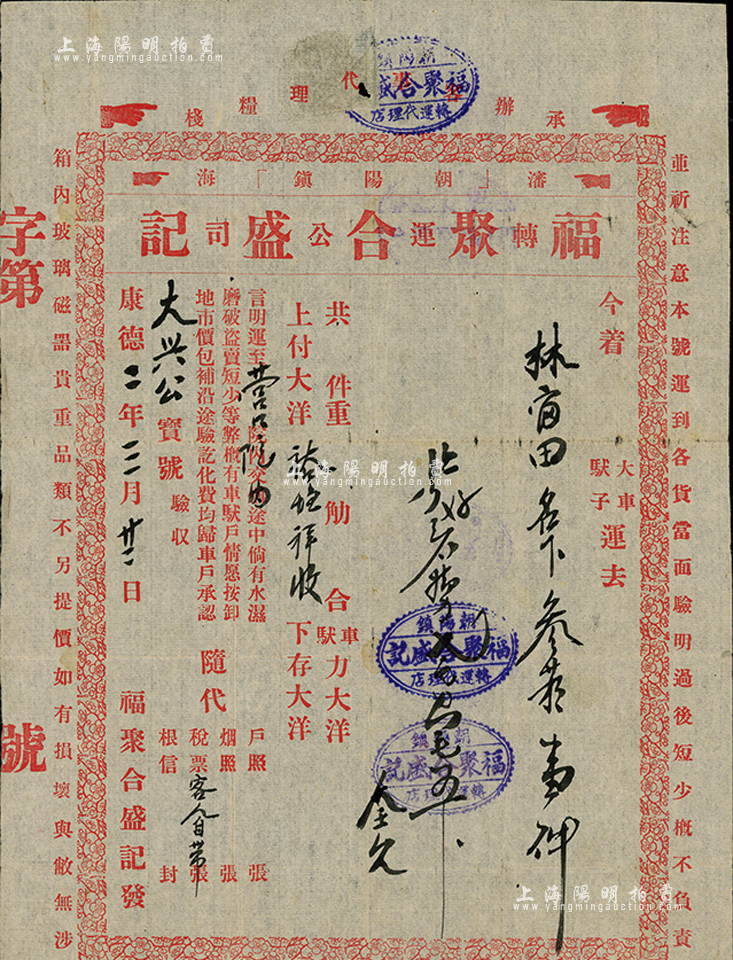 上海陽明拍賣
www.yangmingauction.com
承辦客車代理糧棧
瀋「朝陽鎮」海
福聚合盛記
轉運公司
並祈注意本號運到各貨當面驗明過後短少概不負責
今着
林富田名下
大車
馱子
運去
件
共 件重 觔 合車馱力大洋
上付大洋
祥收
下存大洋
言明運至營口院內
途中倘有水濕
磨破盜賣短少等弊概有車馱戶情愿按卸
地市價包補沿途驗訖化費均歸車戶承認
隨代
戶照 張
烟照 張
稅票客人自帶張
根信 封
大兴公寶號驗收
康德二年三月廿二日
福聚合盛記發
箱內玻璃磁器貴重品類不另提價如有損壞與敝無涉
字第
號
朝陽鎮
福聚合盛記
轉運代理店
朝陽鎮
福聚合盛記
轉運代理店
朝陽鎮
福聚合盛記
轉運代理店
上海陽明拍賣
www.yangmingauction.com
上海陽明拍賣
www.yangmingauction.com